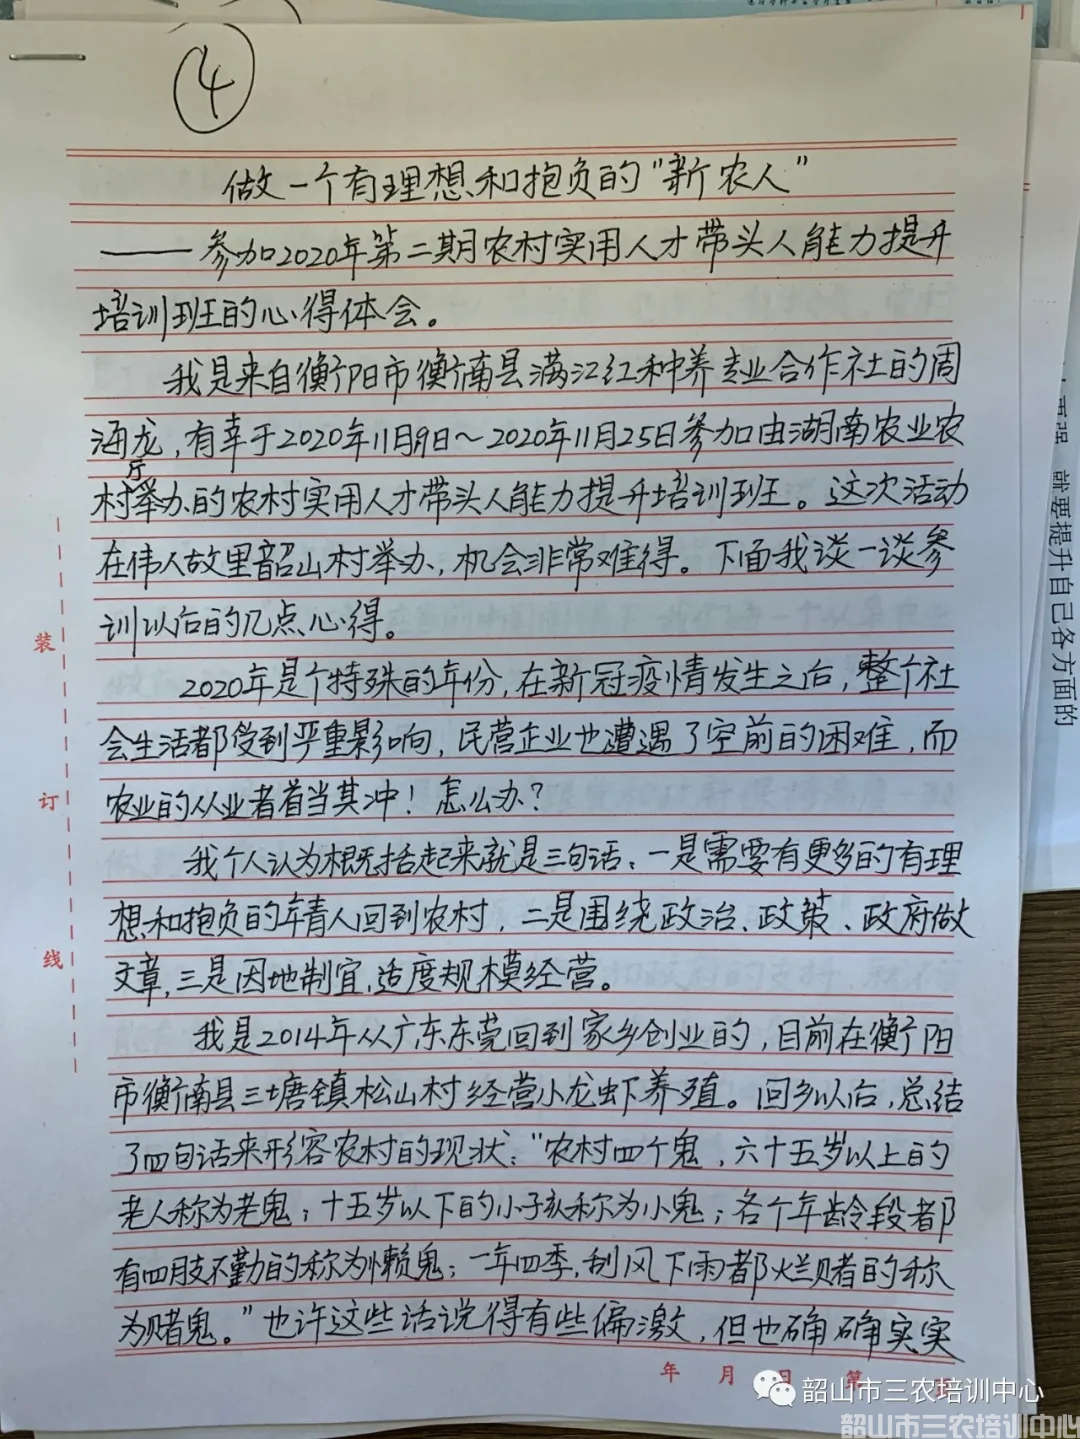 ④
做一个有理想和抱负的“新农人”
——参加2020年第二期农村实用人才带头人能力提升
培训班的心得体会。
我是来自衡阳市衡南县满江红种养专业合作社的周
海龙,有幸于2020年11月9日~2020年11月25日参加由湖南农业农
厅
村举办的农村实用人才带头人能力提升培训班。这次活动
在伟人故里韶山村举办,机会非常难得。下面我谈一谈参
训以后的几点心得。
2020年是个特殊的年份,在新冠疫情发生之后,整个社
会生活都受到严重影响,民营企业也遭遇了空前的困难,而
农业的从业者首当其冲!怎么办?
我个人认为概括起来就是三句话:一是需要有更多的有理
想和抱负的年青人回到农村,二是围绕政治、政策、政府做
文章,三是因地制宜,适度规模经营。
我是2014年从广东东莞回到家乡创业的,目前在衡阳
市衡南县三塘镇松山村经营小龙虾养殖。回乡以后,总结
了四句话来形容农村的现状:“农村四个鬼,六十五岁以上的
老人称为老鬼;十五岁以下的小孩称为小鬼;各个年龄段者都
有四肢不勤的称为懒鬼;一年四季,刮风下雨都烂赌的称
为赌鬼。”也许这些话说得有些偏激,但也确确实实
装
订
线
年 月 日 第
就要提升自己各方面的
韶山市三农培训中心
韶山市三农培训中心